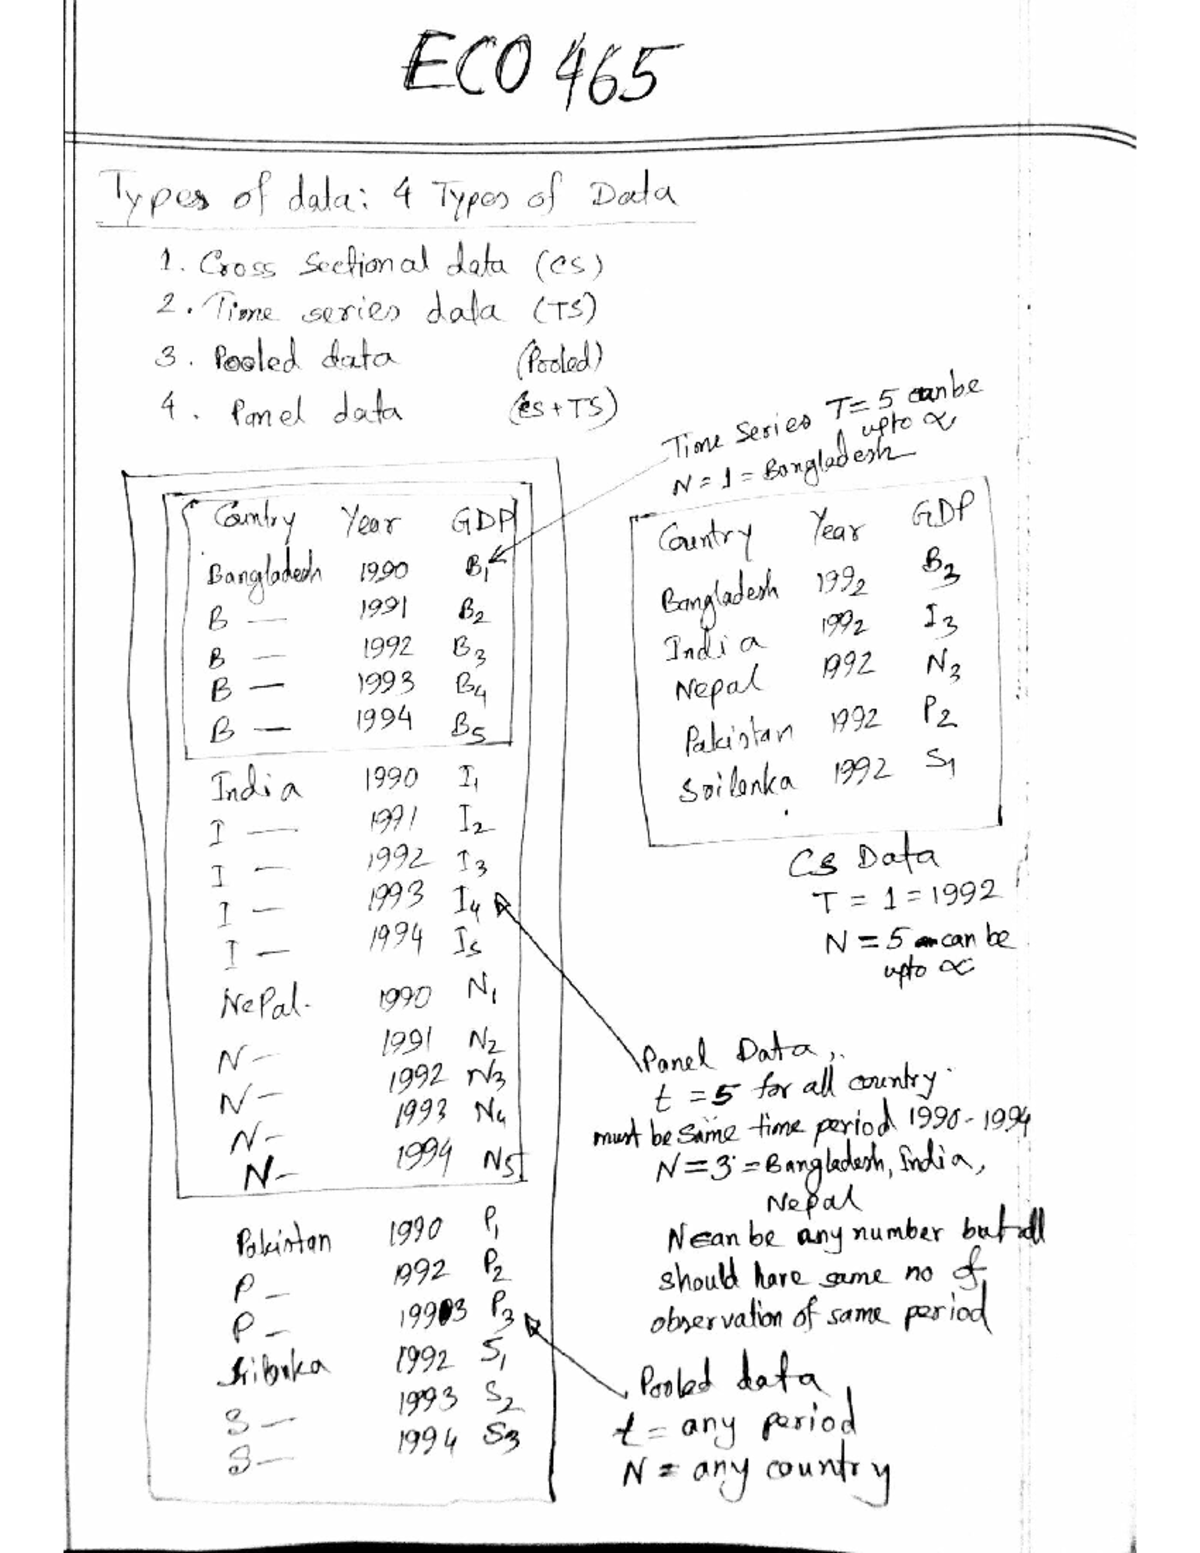 ECO 465
Types of data: 4 Types of Data
1. Cross Sectional data (CS)
2. Time series data (TS)
3. Pooled data (Pooled)
4. Panel data (CS + TS)
Time Series T = 5 can be
upto ∝
N = 1 = Bangladesh
Country Year GDP
Bangladesh 1990 B1
B — 1991 B2
B — 1992 B3
B — 1993 B4
B — 1994 B5
India 1990 I1
I — 1991 I2
I — 1992 I3
I — 1993 I4
I — 1994 I5
Nepal 1990 N1
N — 1991 N2
N — 1992 N3
N — 1993 N4
N — 1994 N5
Pakistan 1990 P1
P — 1992 P2
P — 1993 P3
Srilanka 1992 S1
S — 1993 S2
S — 1994 S3
Country Year GDP
Bangladesh 1992 B3
India 1992 I3
Nepal 1992 N3
Pakistan 1992 P2
Srilanka 1992 S1
CS Data
T = 1 = 1992
N = 5 can be
upto ∝
Panel Data,
t = 5 for all country
must be same time period 1990 - 1994
N = 3 = Bangladesh, India,
Nepal
N can be any number but all
should have same no of
observation of same period
Pooled data,
t = any period
N = any country